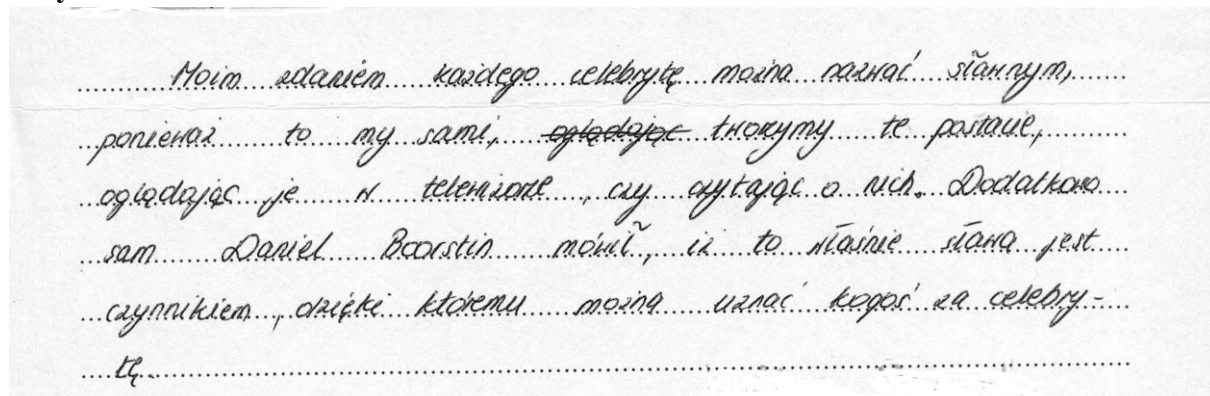 Moim zdaniem każdego celebrytę można nazwać sławnym,
ponieważ to my sami, oglądając tworzymy te postacie,
oglądając je w telewizorze, czy czytając o nich. Dodatkowo
sam Daniel Boorstin mówił, iż to właśnie sława jest
czynnikiem, dzięki któremu można uznać kogoś za celebry-
tę.